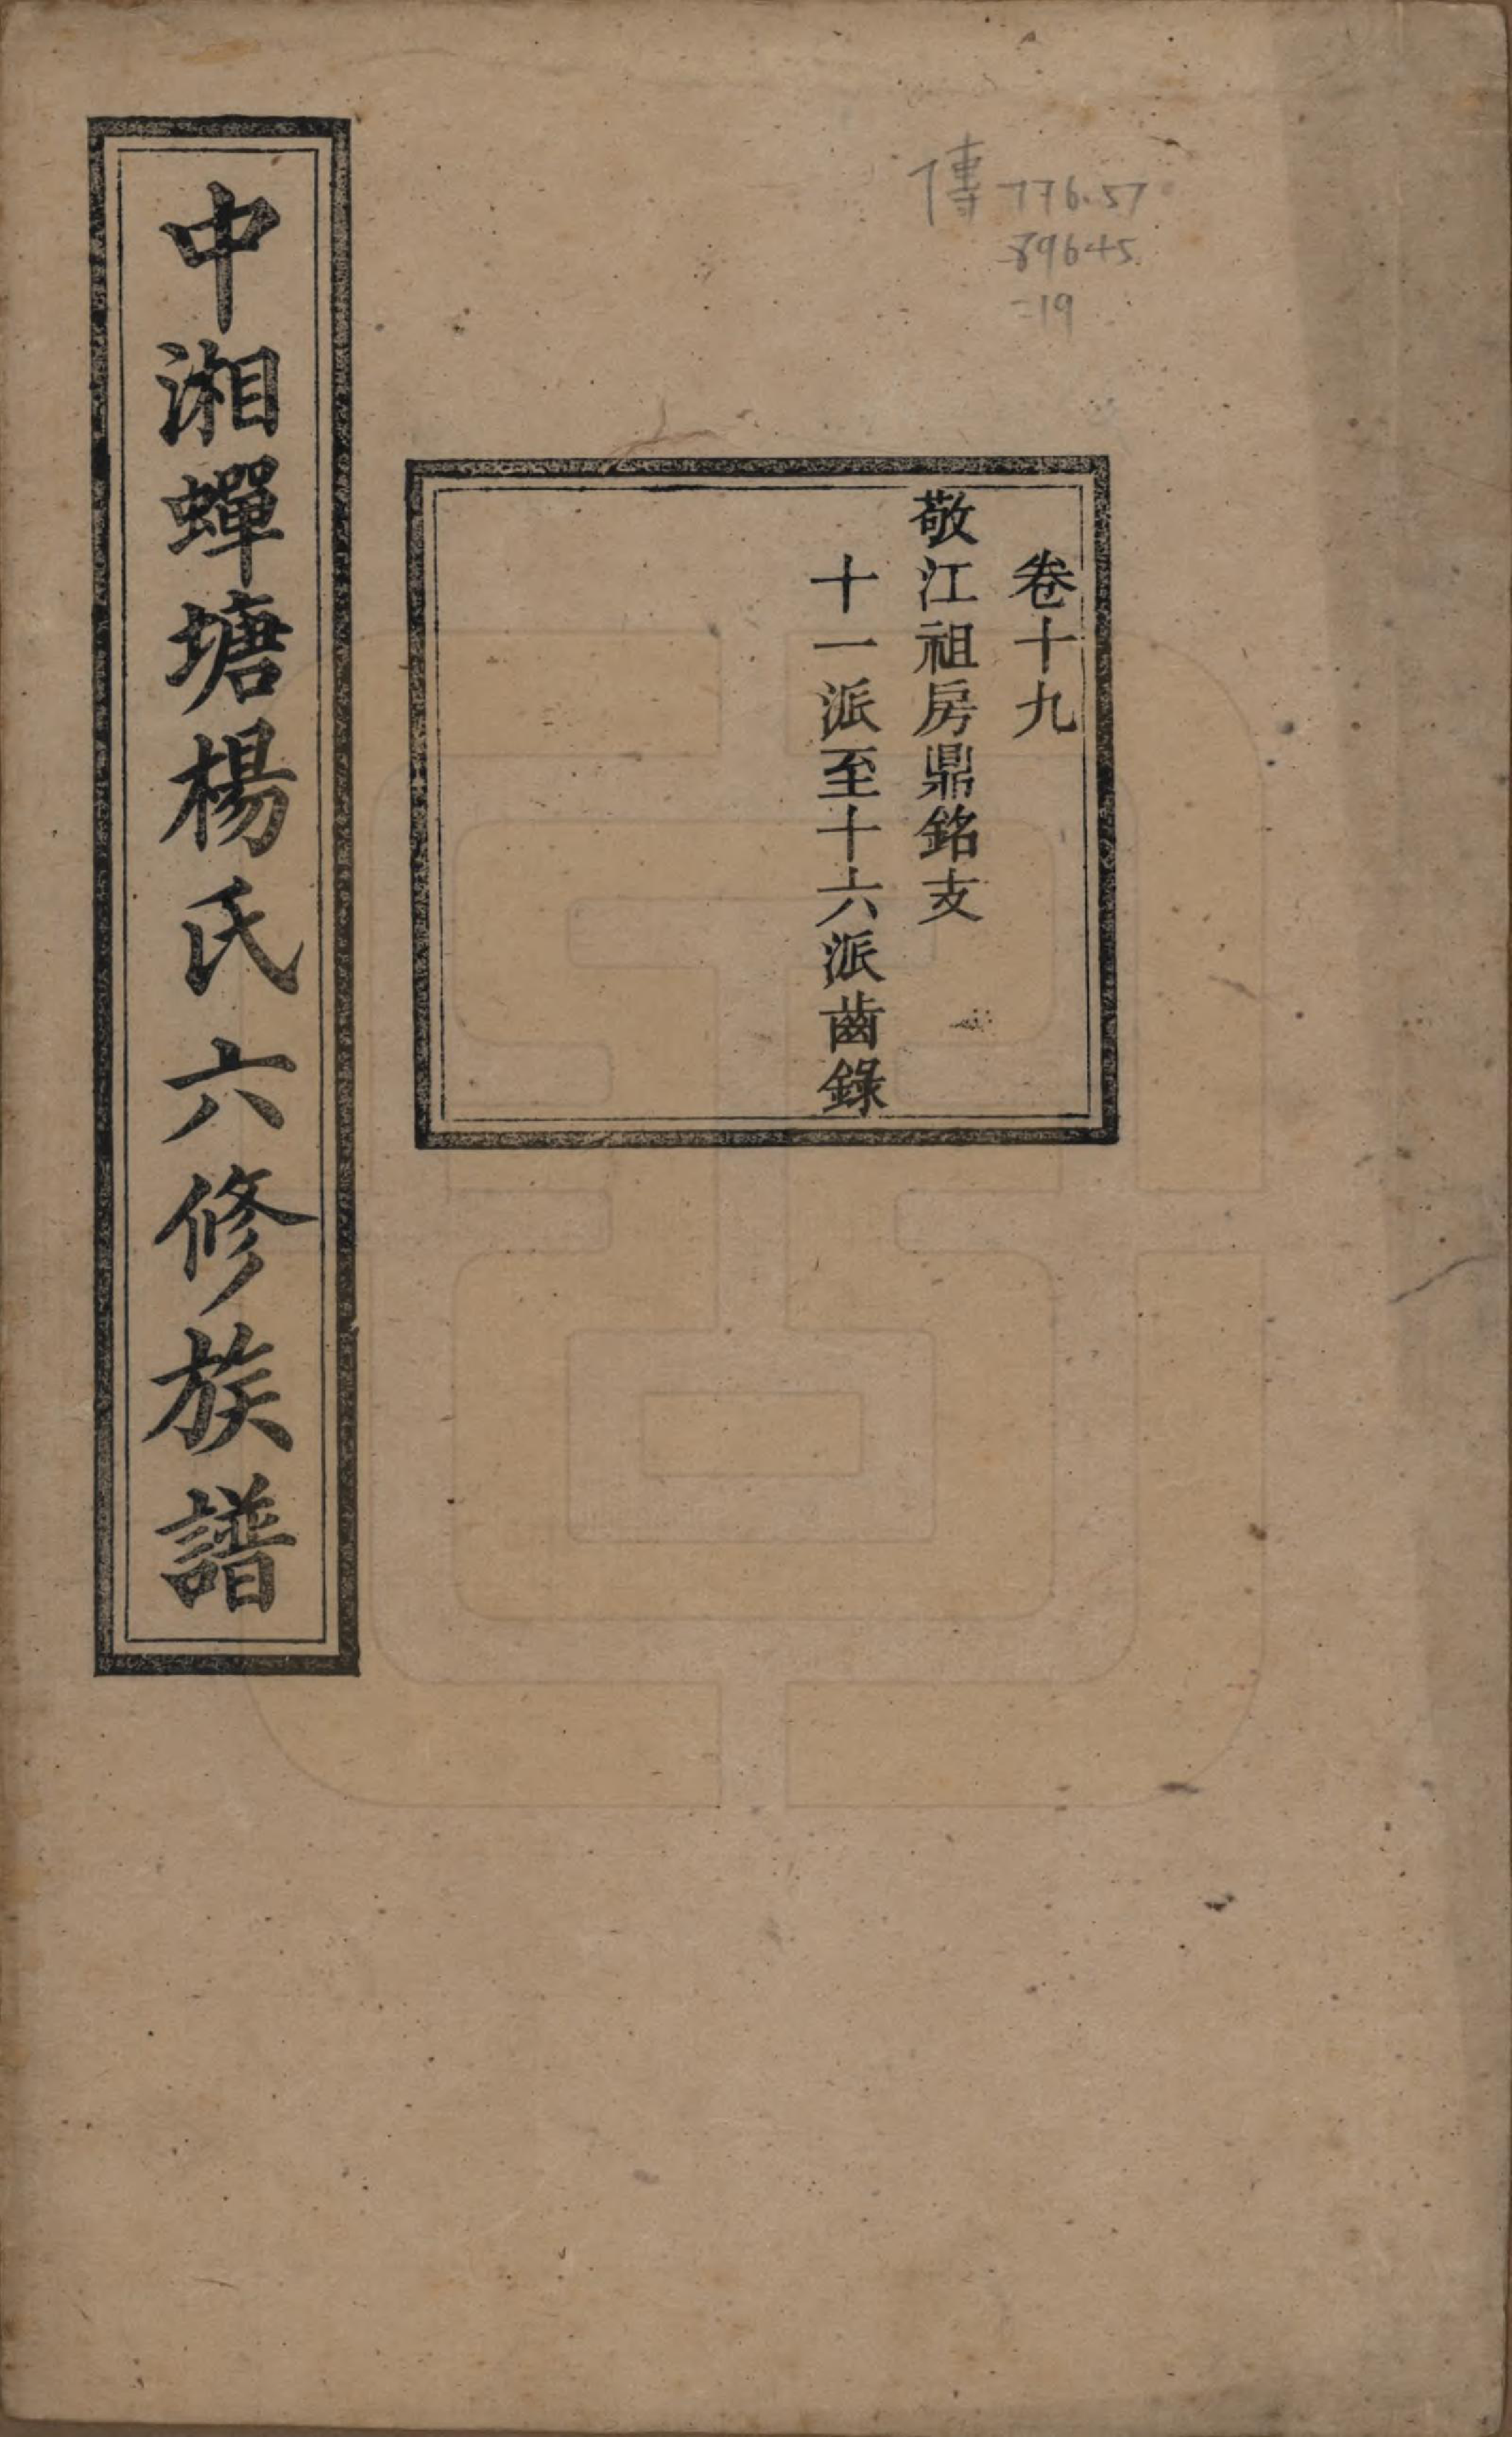 傳 776.57
89645
=19
卷十九
敬江祖房鼎銘支
十一派至十六派齒錄
中湘蟬塘楊氏六修族譜